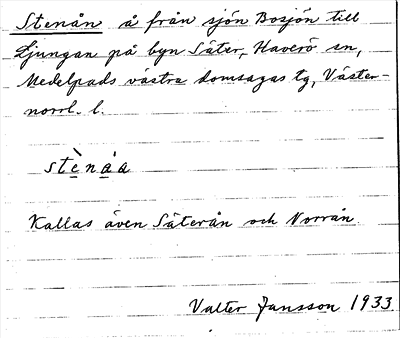 Stenån å från sjön Bosjön till
Ljungan på byn Säter, Haverö sn,
Medelpads västra domsagas tg, Väster-
norrl. l.
stè̱na̱̓a
Kallas även Säterån och Norrån
Valter Jansson 1933